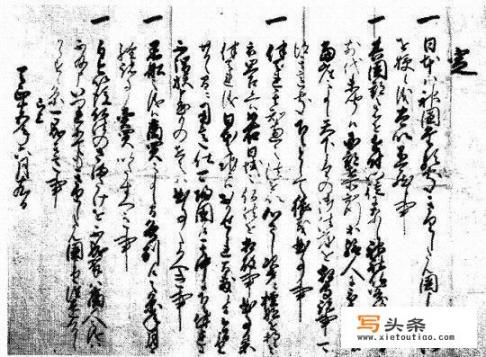 定
一 日本ハ神国たる処きりしたん国
を授候儀太以不可然候事
一 其国郡之者を近付門徒になし神社仏閣
前代未聞候国郡在所知行等給人に
当座之事候天下よりの御法度を相守諸事
其意処下々として猥義曲事事
一 伴天連其知恵之法を以心さし次第に檀那を持
被思召候へハ如右日域之仏法を相破事曲事候条
伴天連儀日本之地ニハおかせられ間敷候間今日
廿日之間に用意仕可帰国候其中に下々伴天連
に不謂族申懸もの在之ハ曲事たるへき事
一 黒船之儀ハ商買之事候間各別に候之条年月
を経諸事売買いたすへき事
一 自今以後仏法のさまたけを不成輩ハ商人之儀ハ
不及申いつれにてもきりしたん国より往還くるし
からす候条可成其意事
已上
天正十五年六月十九日
写头条
www.xietoutiao.com